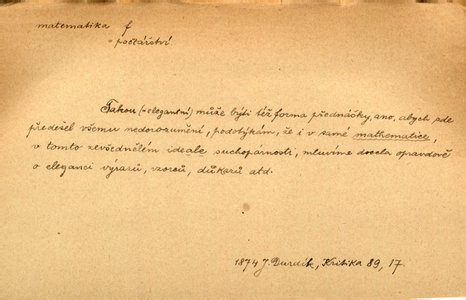 matematika f
= počtářství
Takou (= elegantní) může býti též forma přednášky, ano, abych zde
předešel všemu nedorozumění, podotýkám, že i v samé mathematice,
v tomto zevšednělém ideale suchopárnosti, mluvíme docela opravdově
o eleganci výrazů, vzorců, důkazů atd.
1874 J. Durdík, Kritika 89, 17.